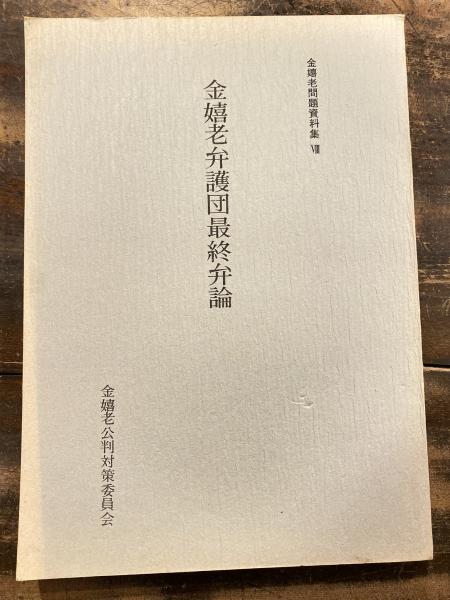 金嬉老問題資料集 Ⅷ
金嬉老弁護団最終弁論
金嬉老公判対策委員会